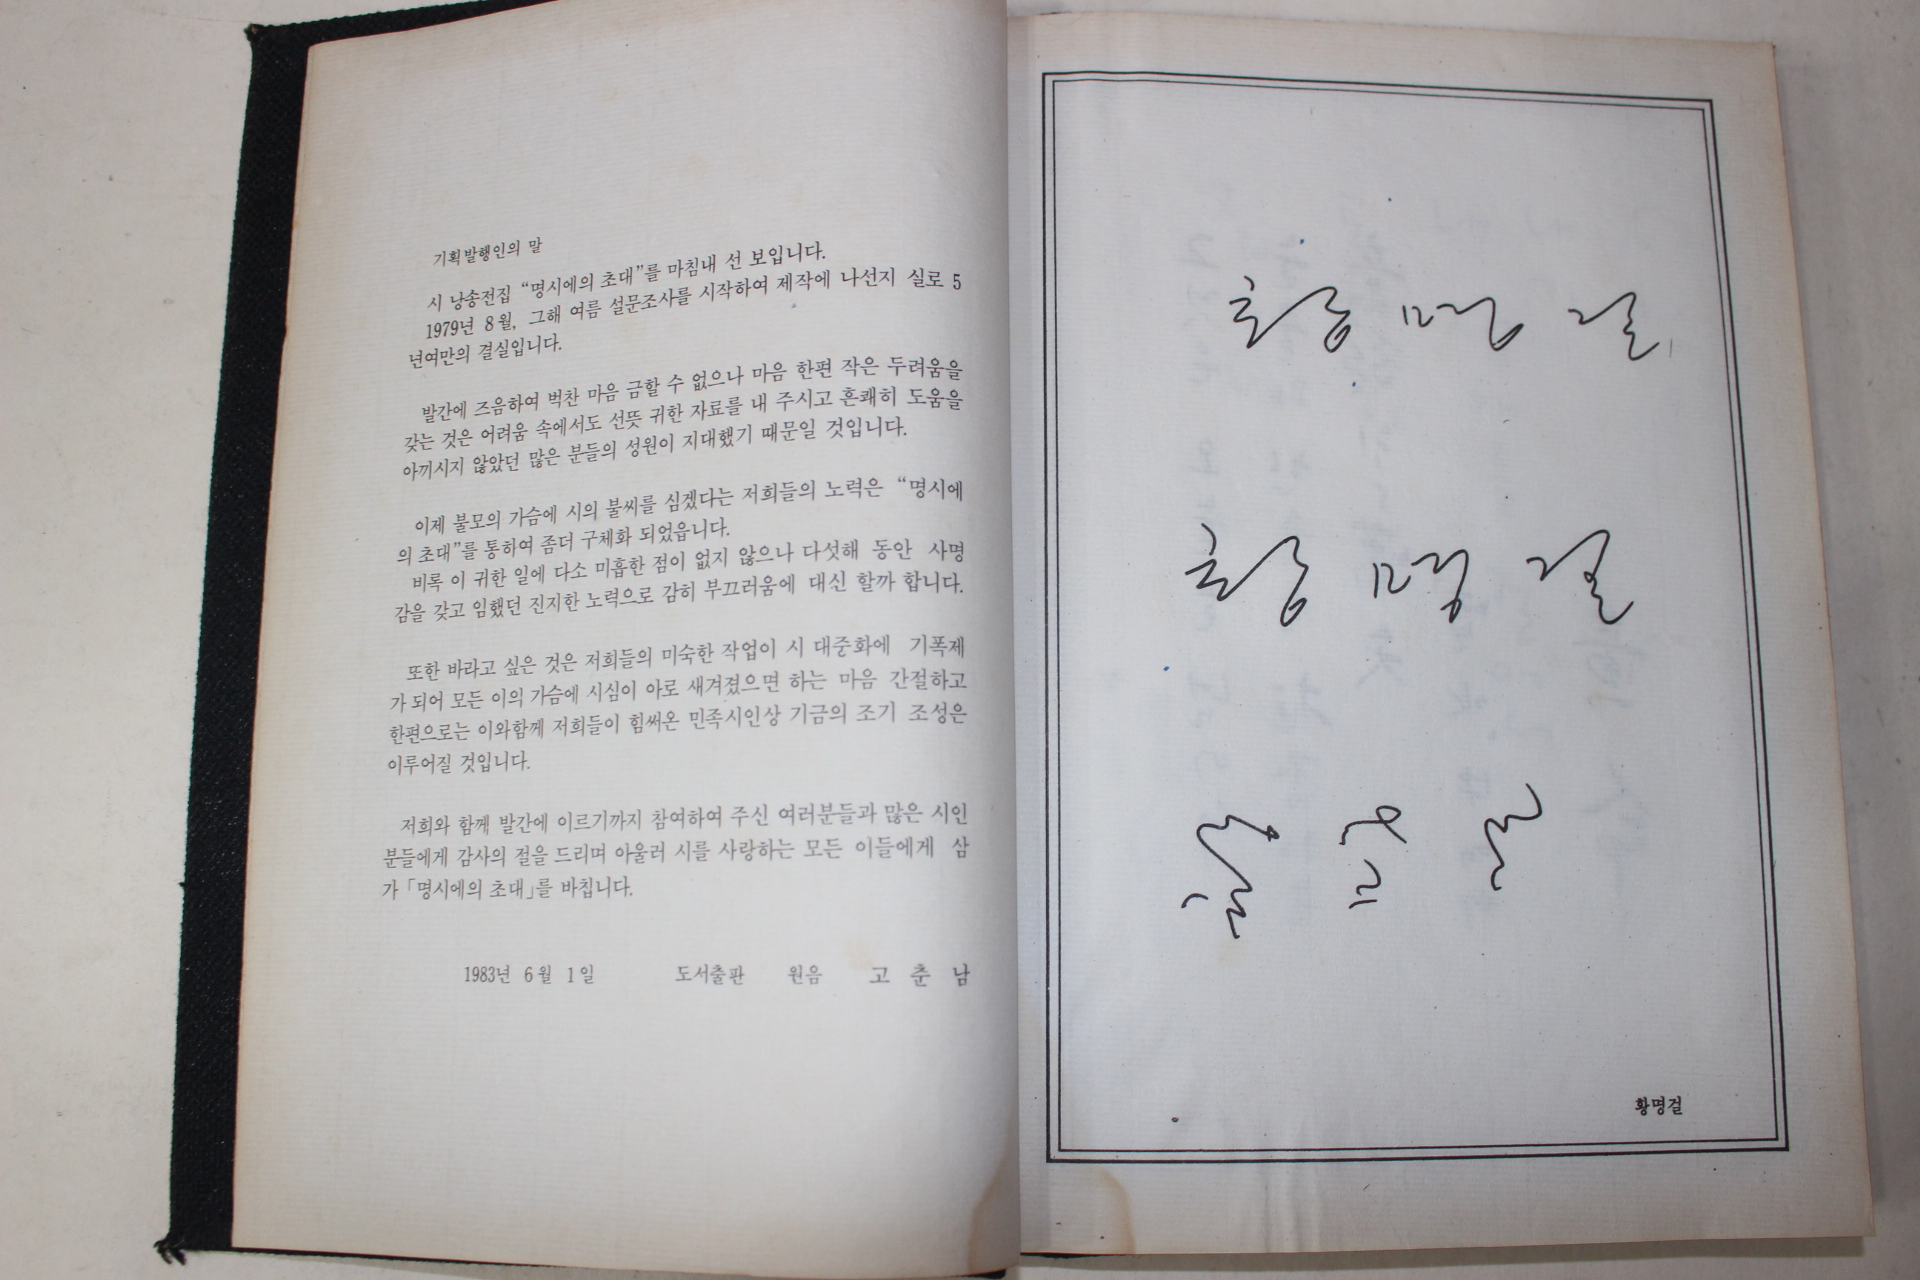 기획발행인의 말
시 낭송전집 “명시에의 초대”를 마침내 선 보입니다.
1979년 8월, 그해 여름 설문조사를 시작하여 제작에 나선지 실로 5
년여만의 결실입니다.
발간에 즈음하여 벅찬 마음 금할 수 없으나 마음 한편 작은 두려움을
갖는 것은 어려움 속에서도 선뜻 귀한 자료를 내 주시고 흔쾌히 도움을
아끼시지 않았던 많은 분들의 성원이 지대했기 때문일 것입니다.
이제 불모의 가슴에 시의 불씨를 심겠다는 저희들의 노력은 “명시에
의 초대”를 통하여 좀더 구체화 되었읍니다.
비록 이 귀한 일에 다소 미흡한 점이 없지 않으나 다섯해 동안 사명
감을 갖고 임했던 진지한 노력으로 감히 부끄러움에 대신 할까 합니다.
또한 바라고 싶은 것은 저희들의 미숙한 작업이 시 대중화에 기폭제
가 되어 모든 이의 가슴에 시심이 아로 새겨졌으면 하는 마음 간절하고
한편으로는 이와함께 저희들이 힘써온 민족시인상 기금의 조기 조성은
이루어질 것입니다.
저희와 함께 발간에 이르기까지 참여하여 주신 여러분들과 많은 시인
분들에게 감사의 절을 드리며 아울러 시를 사랑하는 모든 이들에게 삼
가 「명시에의 초대」를 바칩니다.
1983년 6월 1일 도서출판 원음 고춘남
황명걸
황명걸
황명걸